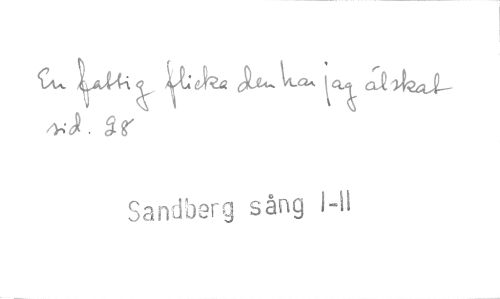 En fattig flicka den har jag älskat
sid. 28
Sandberg sång I-II